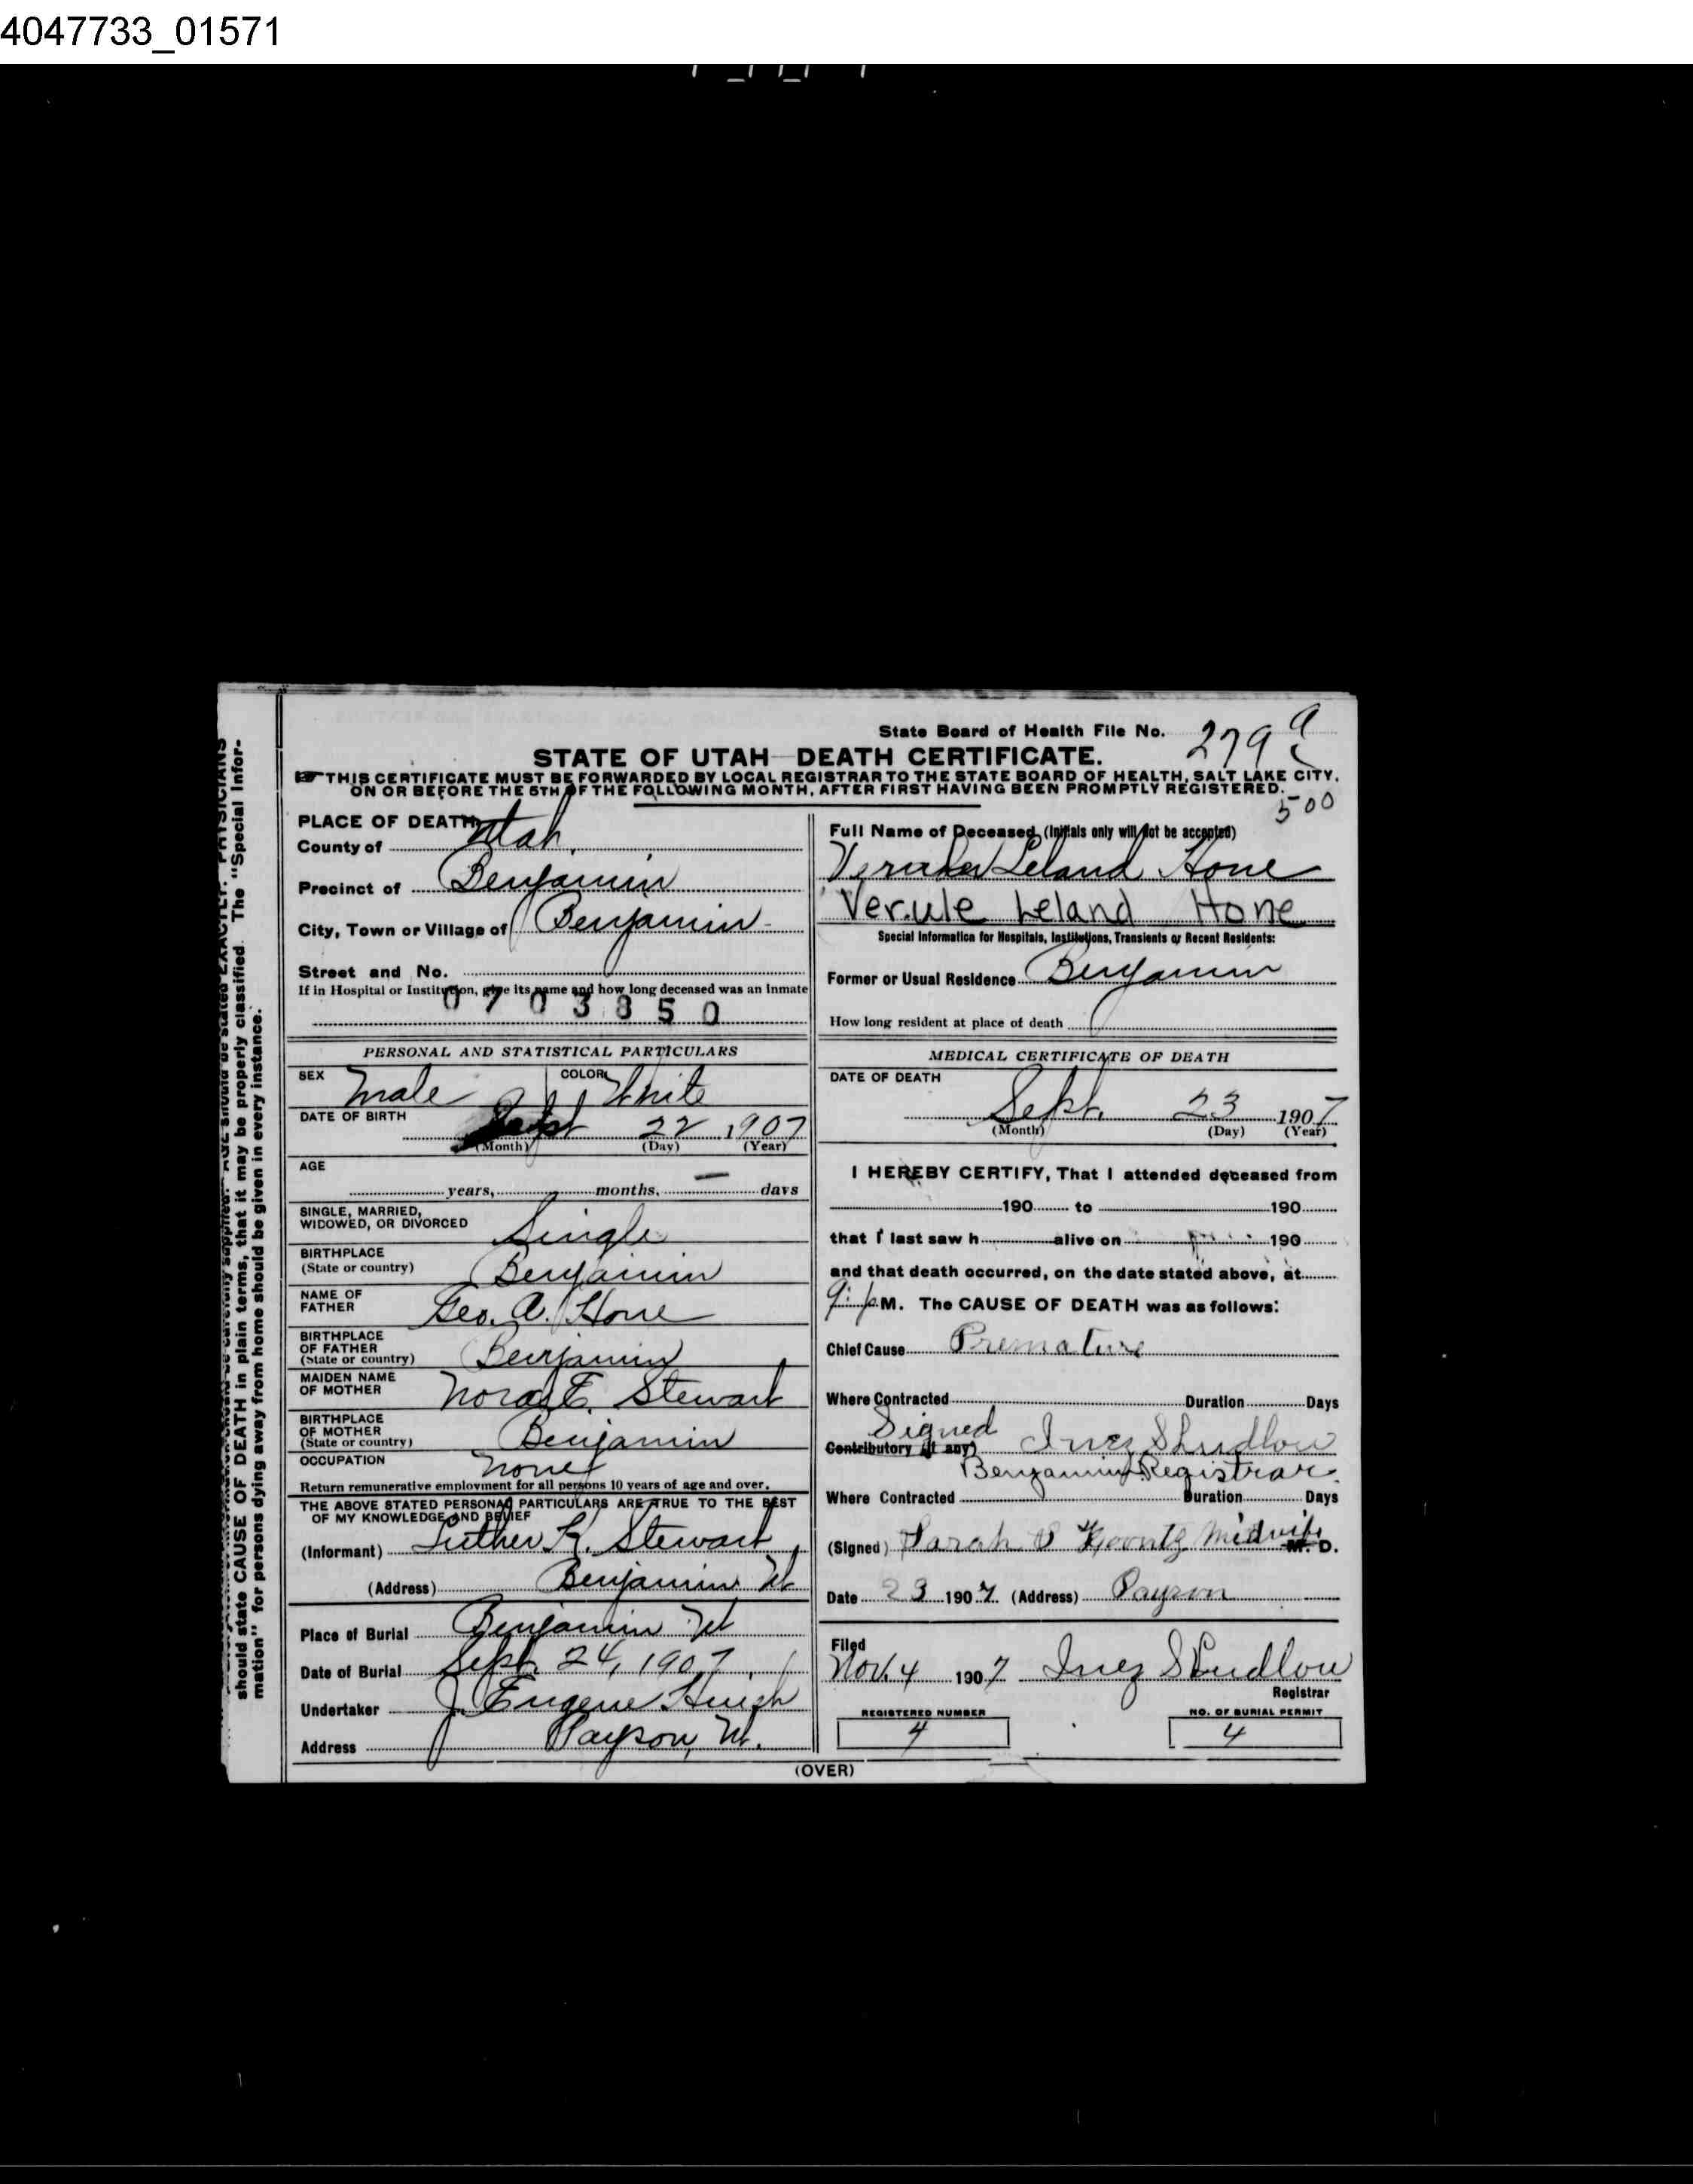 4047733_01571
State Board of Health File No. 279
STATE OF UTAH—DEATH CERTIFICATE.
THIS CERTIFICATE MUST BE FORWARDED BY LOCAL REGISTRAR TO THE STATE BOARD OF HEALTH, SALT LAKE CITY,
ON OR BEFORE THE 5TH OF THE FOLLOWING MONTH, AFTER FIRST HAVING BEEN PROMPTLY REGISTERED.
500
PLACE OF DEATH
County of Utah
Precinct of Benjamin
City, Town or Village of Benjamin
Street and No.
If in Hospital or Institution, give its name and how long deceased was an Inmate
0703850
PERSONAL AND STATISTICAL PARTICULARS
SEX Male COLOR White
DATE OF BIRTH Sept 22 1907
(Month) (Day) (Year)
AGE
years, months, — days
SINGLE, MARRIED,
WIDOWED, OR DIVORCED Single
BIRTHPLACE
(State or country) Benjamin
NAME OF
FATHER Geo. A. Hone
BIRTHPLACE
OF FATHER
(State or country) Benjamin
MAIDEN NAME
OF MOTHER Nora E. Stewart
BIRTHPLACE
OF MOTHER
(State or country) Benjamin
OCCUPATION None
Return remunerative employment for all persons 10 years of age and over.
THE ABOVE STATED PERSONAL PARTICULARS ARE TRUE TO THE BEST
OF MY KNOWLEDGE AND BELIEF
(Informant) Luther K. Stewart
(Address) Benjamin Ut
Place of Burial Benjamin Ut
Date of Burial Sept. 24, 1907
Undertaker J. Eugene Huish
Address Payson, Ut.
Full Name of Deceased (Initials only will not be accepted)
Leland Hone
Verule Leland Hone
Special Information for Hospitals, Institutions, Transients or Recent Residents:
Former or Usual Residence Benjamin
How long resident at place of death
MEDICAL CERTIFICATE OF DEATH
DATE OF DEATH
Sept. 23 1907
(Month) (Day) (Year)
I HEREBY CERTIFY, That I attended deceased from
190 to 190
that I last saw h alive on 190
and that death occurred, on the date stated above, at
9: p.M. The CAUSE OF DEATH was as follows:
Chief Cause Premature
Where Contracted Duration Days
Signed
Contributory (if any) Inez Shudlow
Benjamin Registrar.
Where Contracted Duration Days
(Signed) Sarah Koontz Midwife M. D.
Date 23 1907 (Address) Payson
Filed
Nov. 4 1907 Inez Shudlow
Registrar
REGISTERED NUMBER NO. OF BURIAL PERMIT
4 4
(OVER)
should state CAUSE OF DEATH in plain terms, that it may be properly classified. The "Special Infor-
mation" for persons dying away from home should be given in every instance.